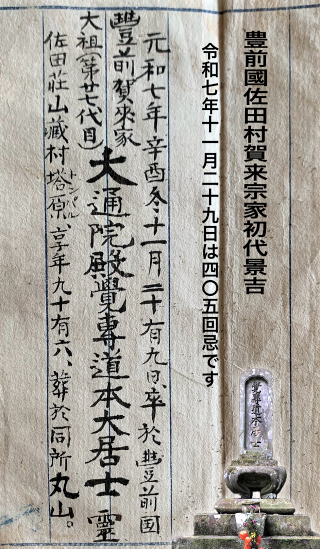 豊前國佐田村賀来宗家初代景吉
令和七年十一月二十九日は四〇五回忌です
元和七年辛酉冬十一月二十有九日、卒於豊前国
豐前賀来家
大祖(第廿七代目)
大通院殿覺專道本大居士靈
佐田荘山蔵村塔原、享年九十有六、葬於同所丸山。
トンバル
覺專道本居士